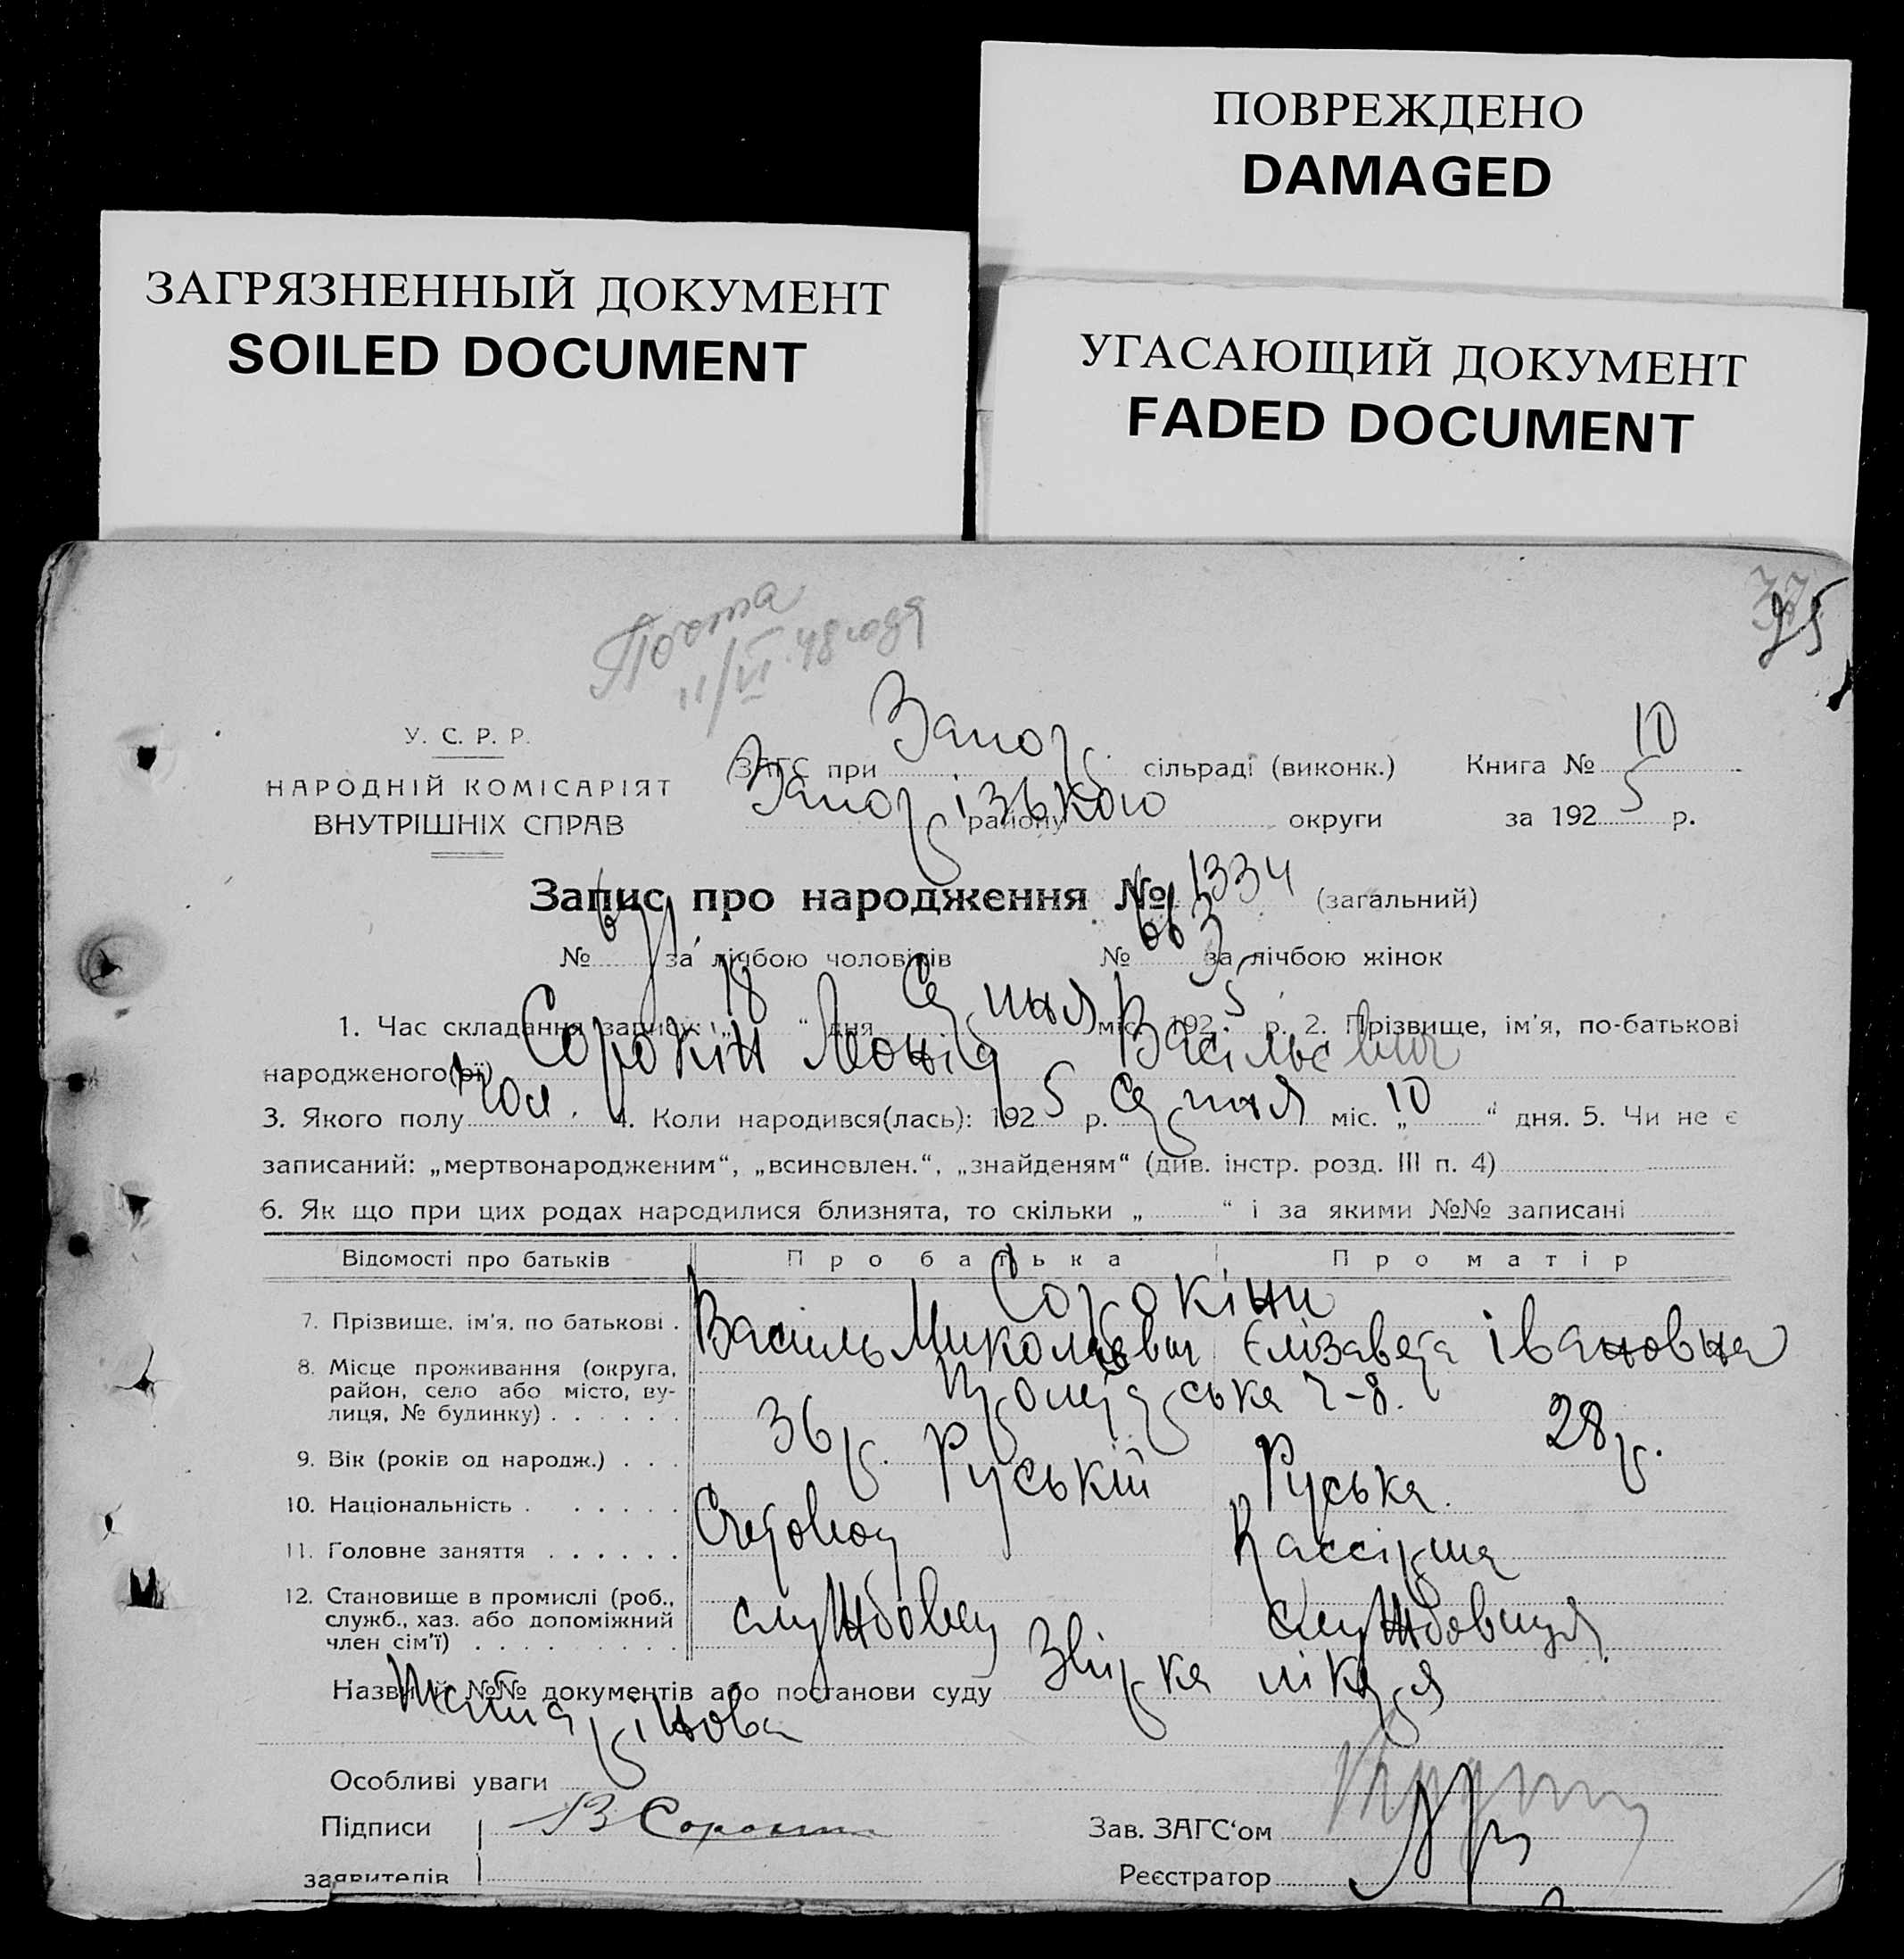 ПОВРЕЖДЕНО
DAMAGED
ЗАГРЯЗНЕННЫЙ ДОКУМЕНТ
SOILED DOCUMENT
УГАСАЮЩИЙ ДОКУМЕНТ
FADED DOCUMENT
11/VI 48 года
У. С. Р. Р.
НАРОДНІЙ КОМІСАРІЯТ
ВНУТРІШНІХ СПРАВ
ЗАГС при Запор. сільраді (виконк.) Книга № 10
Запорізького району округи за 1925 р.
Запис про народження № 1334 (загальний)
№ за лічбою чоловіків № 663 за лічбою жінок
1. Час складання запису: „18“ дня Серпня міс. 1925 р. 2. Прізвище, ім'я, по-батькові
народженого(ої) Сорокін Леонід Васільєвич
3. Якого полу Чол. 4. Коли народився(лась): 1925 р. Серпня міс. „10“ дня. 5. Чи не є
записаний: „мертвонародженим“, „всиновлен.“, „знайденям“ (див. інстр. розд. III п. 4)
6. Як що при цих родах народилися близнята, то скільки „ “ і за якими №№ записані
Відомості про батьків Про батька Про матір
Сорокіни
7. Прізвище, ім'я, по батькові . Василь Миколаевич Єлізавета Івановна
8. Місце проживання (округа,
район, село або місто, ву-
лиця, № будинку) . . . . . . Пролетарська 7-8.
9. Вік (років од народж.) . . . 36 р. 28 р.
10. Національність . . . . . . Руський Руська.
11. Головне заняття . . . . . . Счетовод Кассірша
12. Становище в промислі (роб.,
служб., хаз. або допоміжний
член сім'ї) . . . . . . . . . службовец службовиця.
Назви й №№ документів або постанови суду Звірка лікаря
Особливі уваги
Підписи В Сорокин Зав. ЗАГС'ом
заявителів Реєстратор